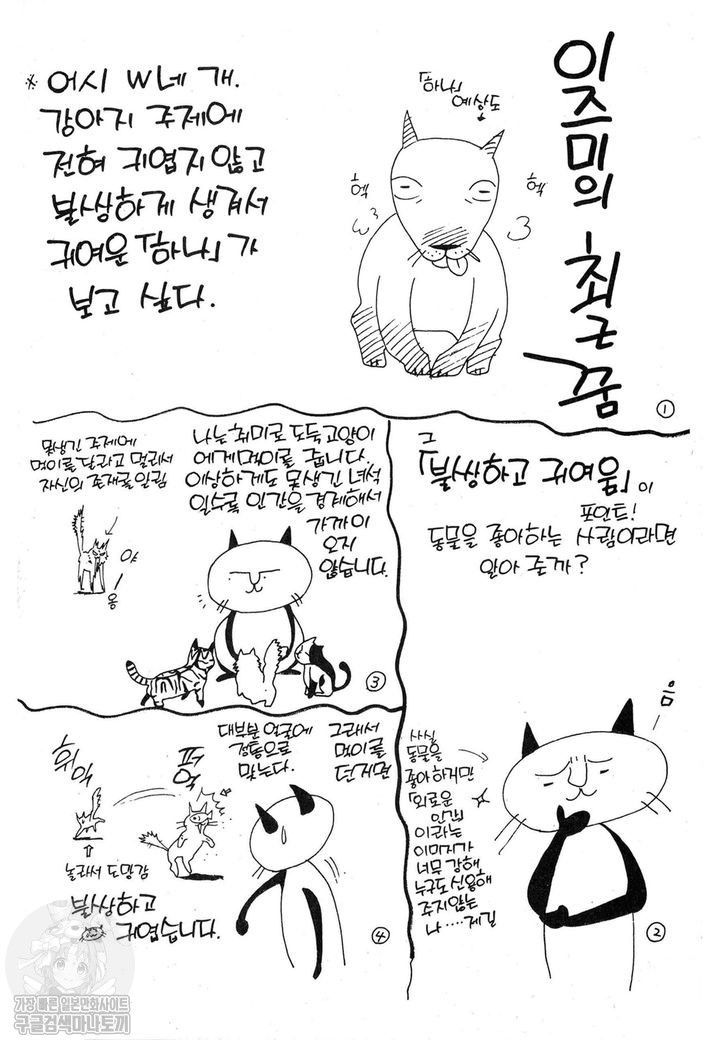 이즈미의 최근 꿈
「하나」
예상도
헥
헥
※ 어시 W네 개.
강아지 주제에
전혀 귀엽지 않고
불쌍하게 생겨서
귀여운 「하나」가
보고 싶다.
①
그
「불쌍하고 귀여움」이
포인트!
동물을 좋아하는 사람이라면
알아 줄까?
음
사실
동물을
좋아하지만
「외로운
인간」
이라는
이미지가
너무 강해
누구도 신용해
주지않는
나‥‥제길
②
나는 취미로 도둑고양이
에게 먹이를 줍니다.
이상하게도 못생긴 녀석
일수록 인간을 경계해서
가까이
오지
않습니다.
못생긴 주제에
먹이를 달라고 멀리서
자신의 존재를 알림
야
옹
③
그래서
먹이를
던지면
대부분 얼굴에
정통으로
맞는다.
퍼
억
휘익
놀라서 도망감
불쌍하고
귀엽습니다.
④
가장 빠른 일본만화사이트
구글검색마나토끼